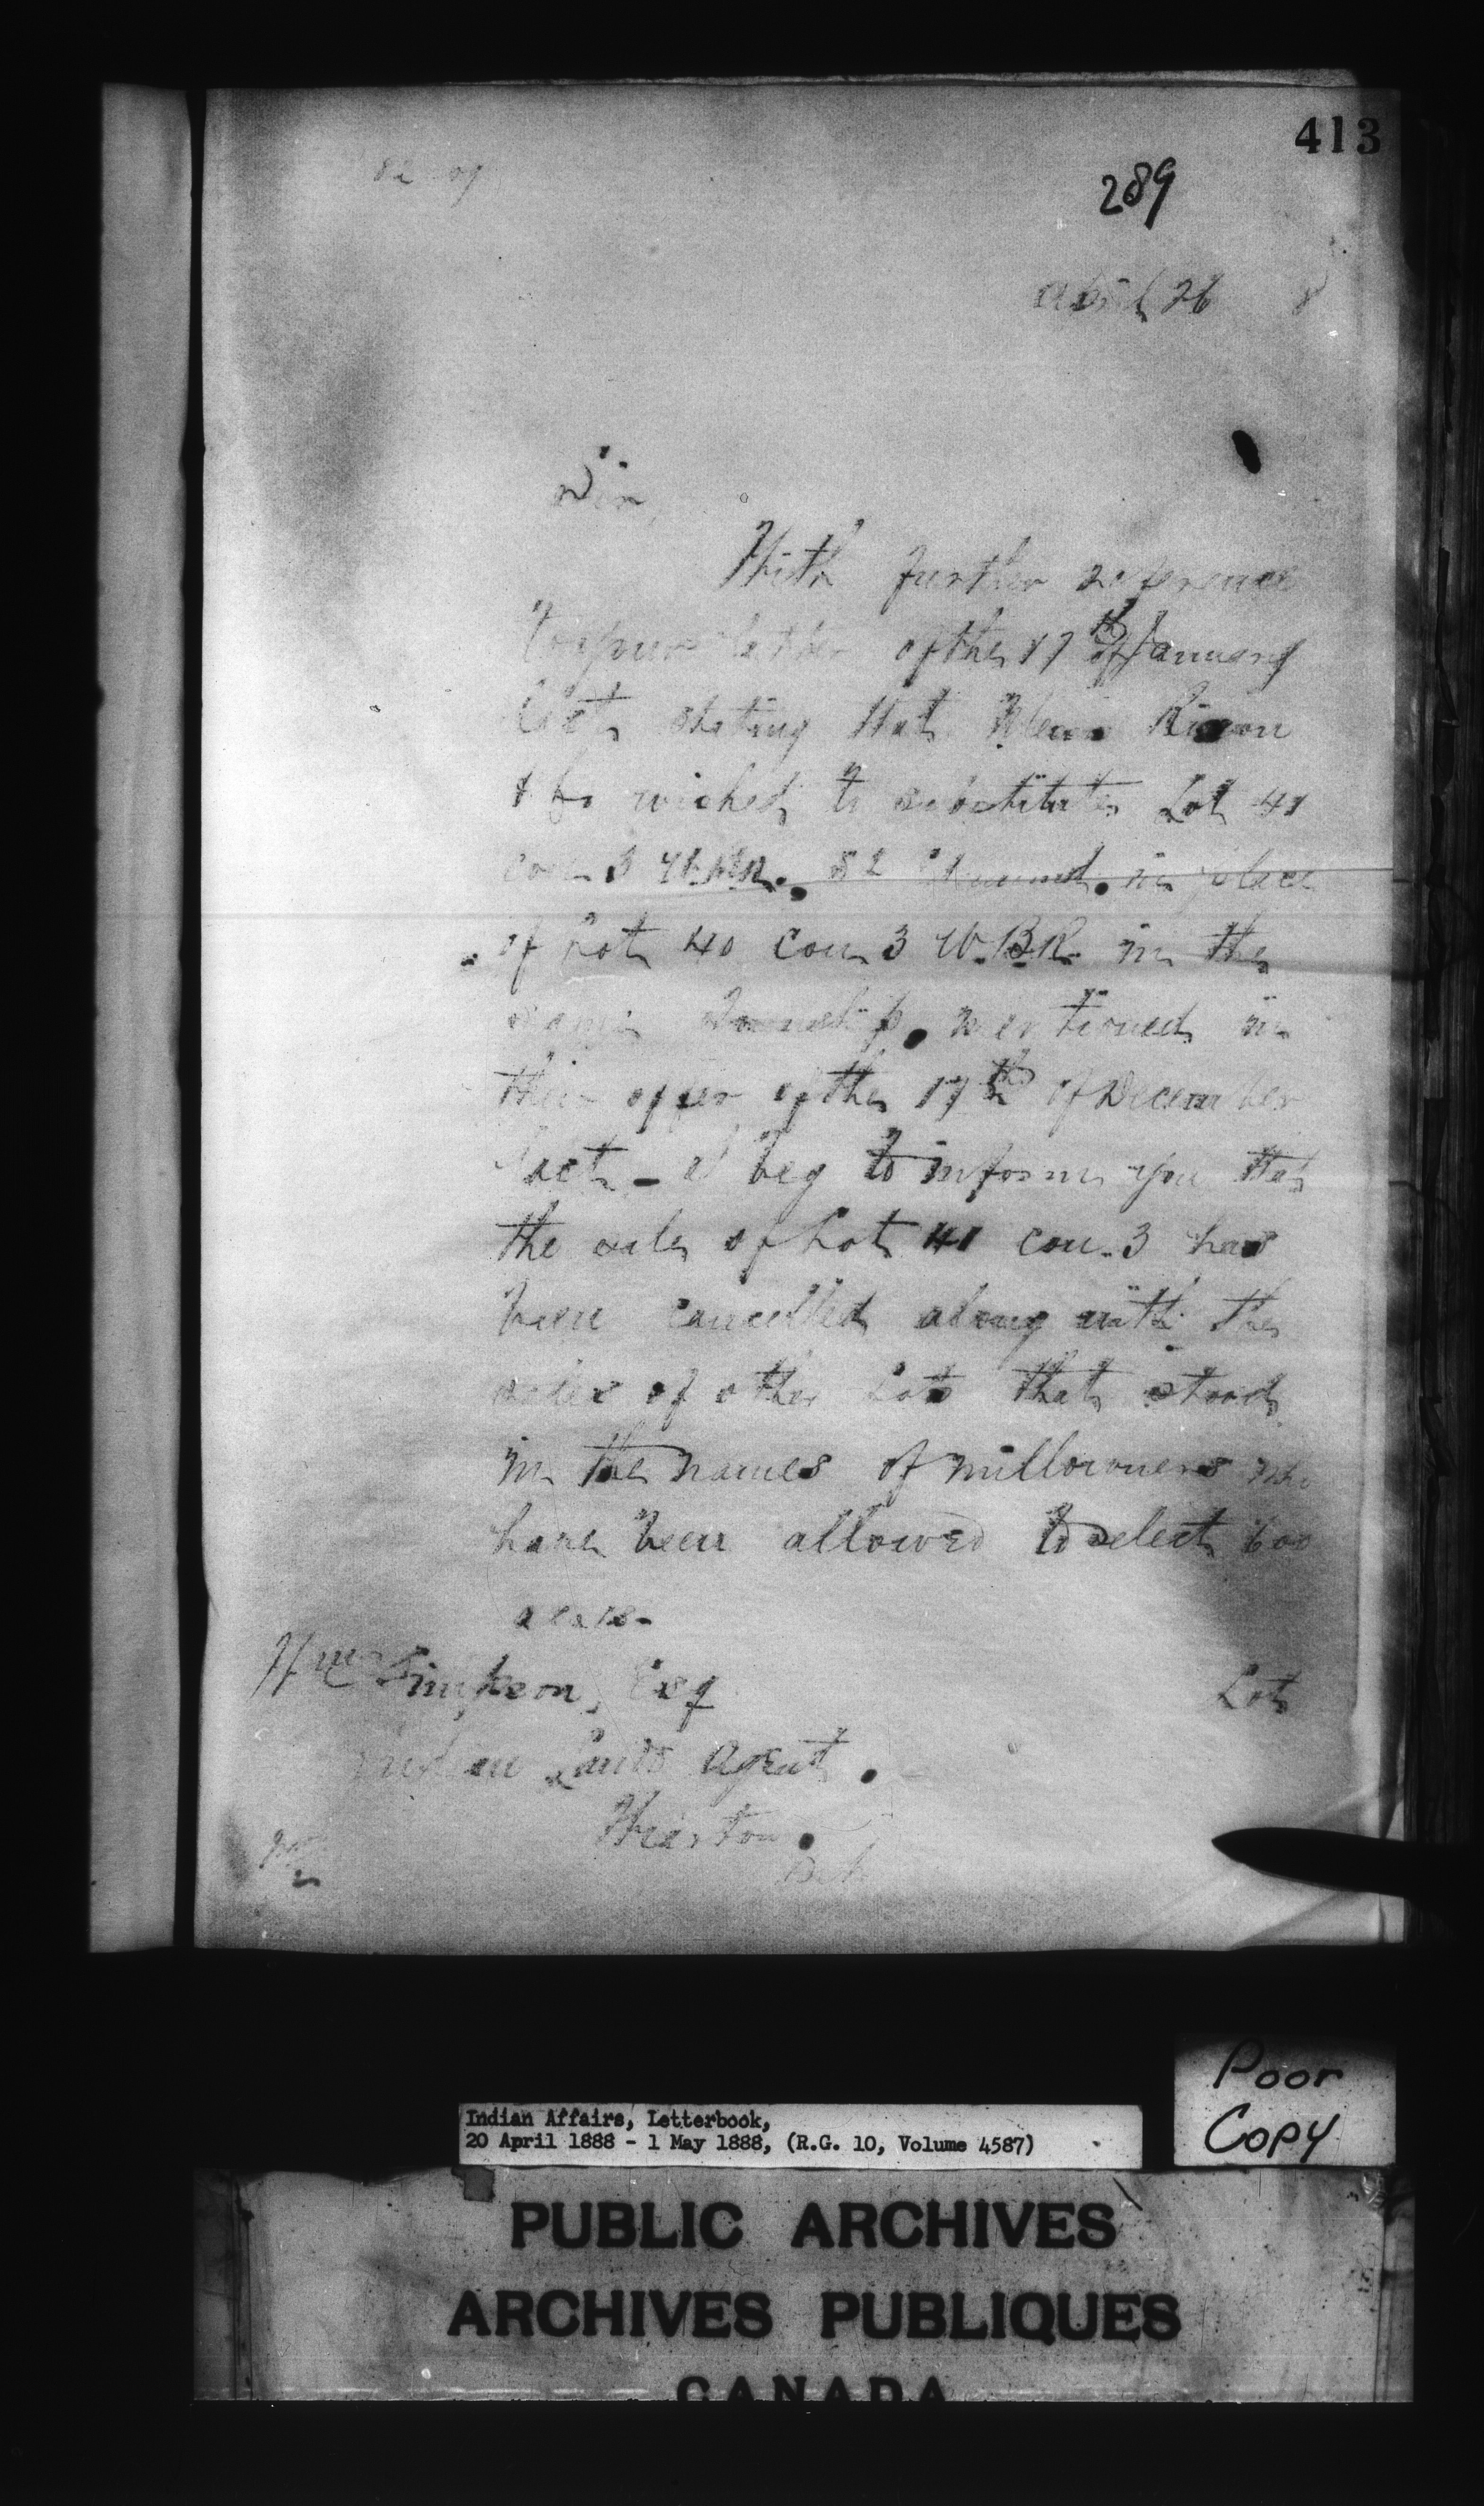 413
289
April 26 8
Sir,
With further reference
to your letter of the 17th of January
last, stating that Messrs
& Co wished to substitute Lot 41
con 3 W.B.R. in place
of Lot 40 con 3 W.B.R. in the
same Township, mentioned in
their offer of the 17th of December
last - I beg to inform you that
the sale of Lot 41 con. 3 has
been cancelled along with the
sales of other Lots that stood
in the names of millowners who
have been allowed to select 600
acres-
Wm Simpson, Esq
Lot
Indian Lands Agent.
Wiarton.
Poor
Copy
Indian Affairs, Letterbook,
20 April 1888 - 1 May 1888, (R.G. 10, Volume 4587)
PUBLIC ARCHIVES
ARCHIVES PUBLIQUES
CANADA